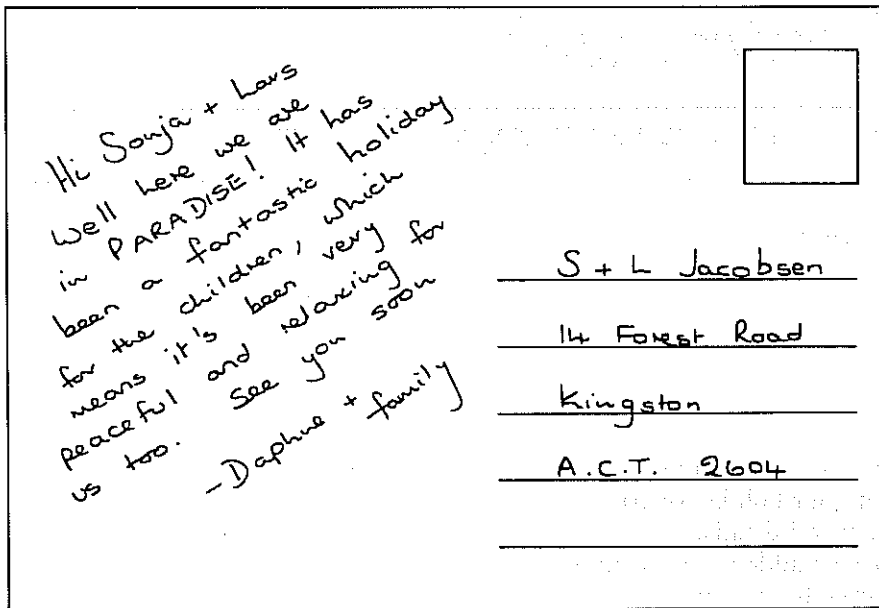 Hi Sonja + Lars
Well here we are
in PARADISE! It has
been a fantastic holiday
for the children, which
means it's been very
peaceful and relaxing for
us too. See you soon
-Daphne + family
S + L Jacobsen
14 Forest Road
Kingston
A.C.T. 2604